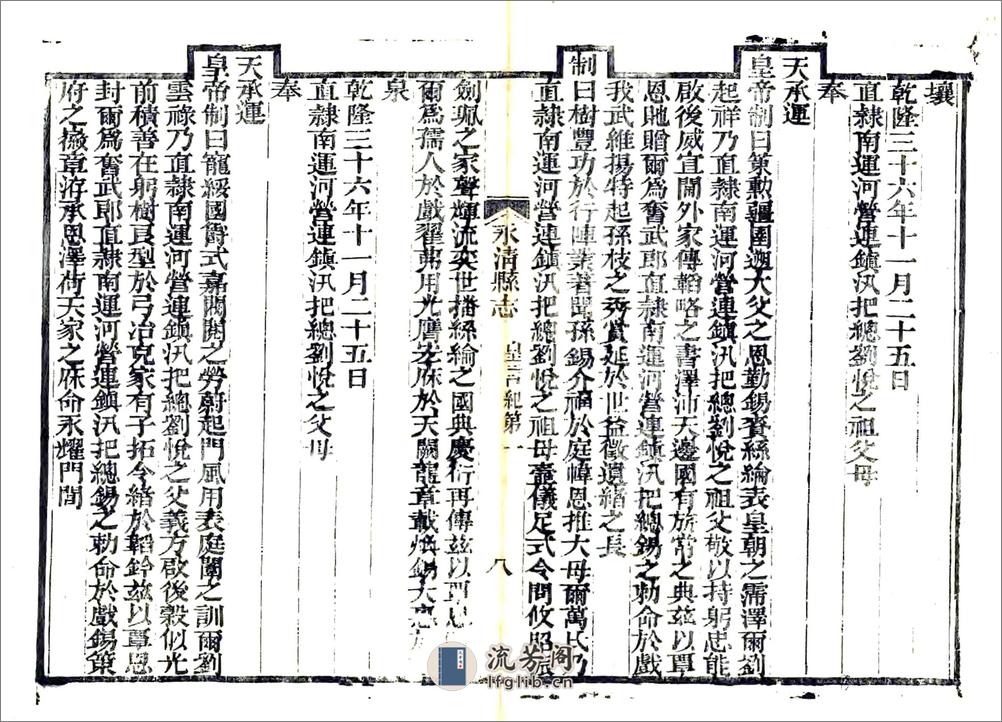 壤
乾隆三十六年十一月二十五日
直隸南運河營連鎮汛把總劉悅之祖父母
奉
天承運
皇帝制曰策勲疆圉遡大父之恩勤錫賚絲綸表皇朝之霈澤爾劉
起祥乃直隸南運河營連鎮汛把總劉悅之祖父敬以持躬忠能
啟後威宣閫外家傳韜略之書澤沛天邊國有旂常之典兹以覃
恩貤贈爾爲奮武郎直隸南運河營連鎮汛把總錫之勅命於戲
我武維揚特起孫枝之秀賞延於世益徵遺緒之長
制曰樹豐功於行陣業著聞孫錫介福於庭幃恩推大母爾萬氏乃
直隸南運河營連鎮汛把總劉悅之祖母壼儀足式令問攸昭振
永清縣志 皇言紀第一 八
劍珮之家聲輝流奕世播絲綸之國典慶衍再傳兹以覃恩
爾爲孺人於戲翟茀用光膺茂庥於天闕龍章載煥錫大惠於
泉
乾隆三十六年十一月二十五日
直隸南運河營連鎮汛把總劉悅之父母
奉
天承運
皇帝制曰寵綏國爵式嘉閥閱之勞蔚起門風用表庭闈之訓爾劉
雲祿乃直隸南運河營連鎮汛把總劉悅之父義方啟後穀似光
前積善在躬樹良型於弓冶克家有子拓令緒於韜鈐兹以覃恩
封爾爲奮武郎直隸南運河營連鎮汛把總錫之勅命於戲錫策
府之徽章洊承恩澤荷天家之庥命永耀門閭
流芳閣
lfglib.cn